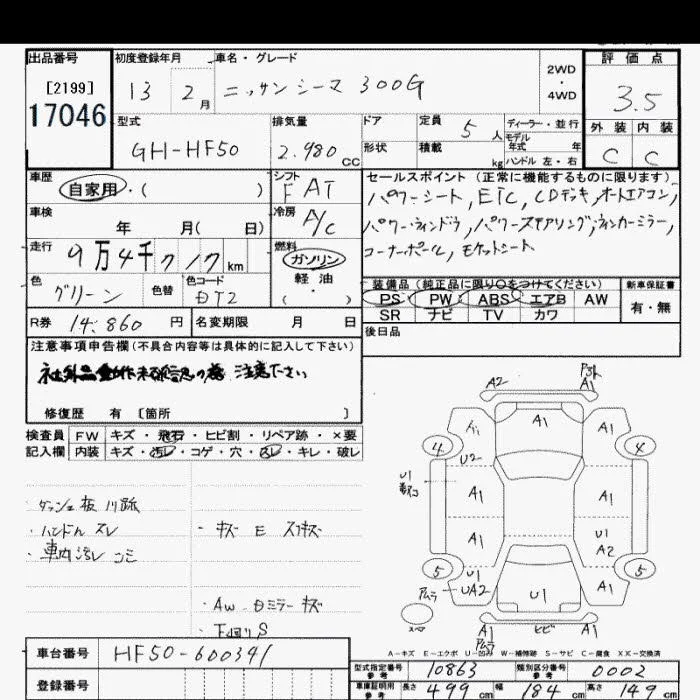 出品番号 初度登録年月 車名・グレード 評価点
[2199] 13 2月 ニッサン シーマ 300G 2WD・4WD 3.5
17046
型式 排気量 ドア 定員 5人 ディーラー・並行 外装 内装
GH-HF50 2.980cc 形状 積載 kg モデル年式 年 C C
ハンドル 左・右
車歴 シフト セールスポイント (正常に機能するものに限ります)
自家用・( ) FAT パワーシート, ETC, CDデッキ, オートエアコン,
車検 冷房 パワーウィンドウ, パワーステアリング, ウィンカーミラー,
年 月( 日) A/C コーナーポール, モケットシート
走行 9万4千717km 燃料 ガソリン
軽油
( ・ )
色 グリーン 色替 色コード DT2
装備品 (純正品に限り○をつけてください) 新車保証書
PS PW ABS エアB AW 有・無
SR ナビ TV カワ
R券 14.860円 名変期限 月 日 後日品
注意事項申告欄 (不具合内容等は具体的に記入して下さい)
社外品動作未確認の為 注意下さい
修復歴 有 [箇所 ]
検査員 FW キズ・飛石・ヒビ割・リペア跡・×要
記入欄 内装 キズ・汚レ・コゲ・穴・スレ・キレ・破レ
・ハンドル スレ ・キズ E スリキズ
・車内汚レ
・AW ミラー キズ
・下回り S
A2 A1
A1 A1 A1
4 4
U2
U1
A1 A1
A1 U1
A2
5 5
U1
UA2 U1 A1
A1 ヒビ A1
A-キズ E-エクボ U-凹み W-補修跡 S-サビ C-腐食 XX-交換済
車台番号 HF50-600341
型式指定番号 参考 10863 類別区分番号 参考 0002
登録番号
車庫証明用 参考 長さ 499cm 幅 184cm 高さ 149cm